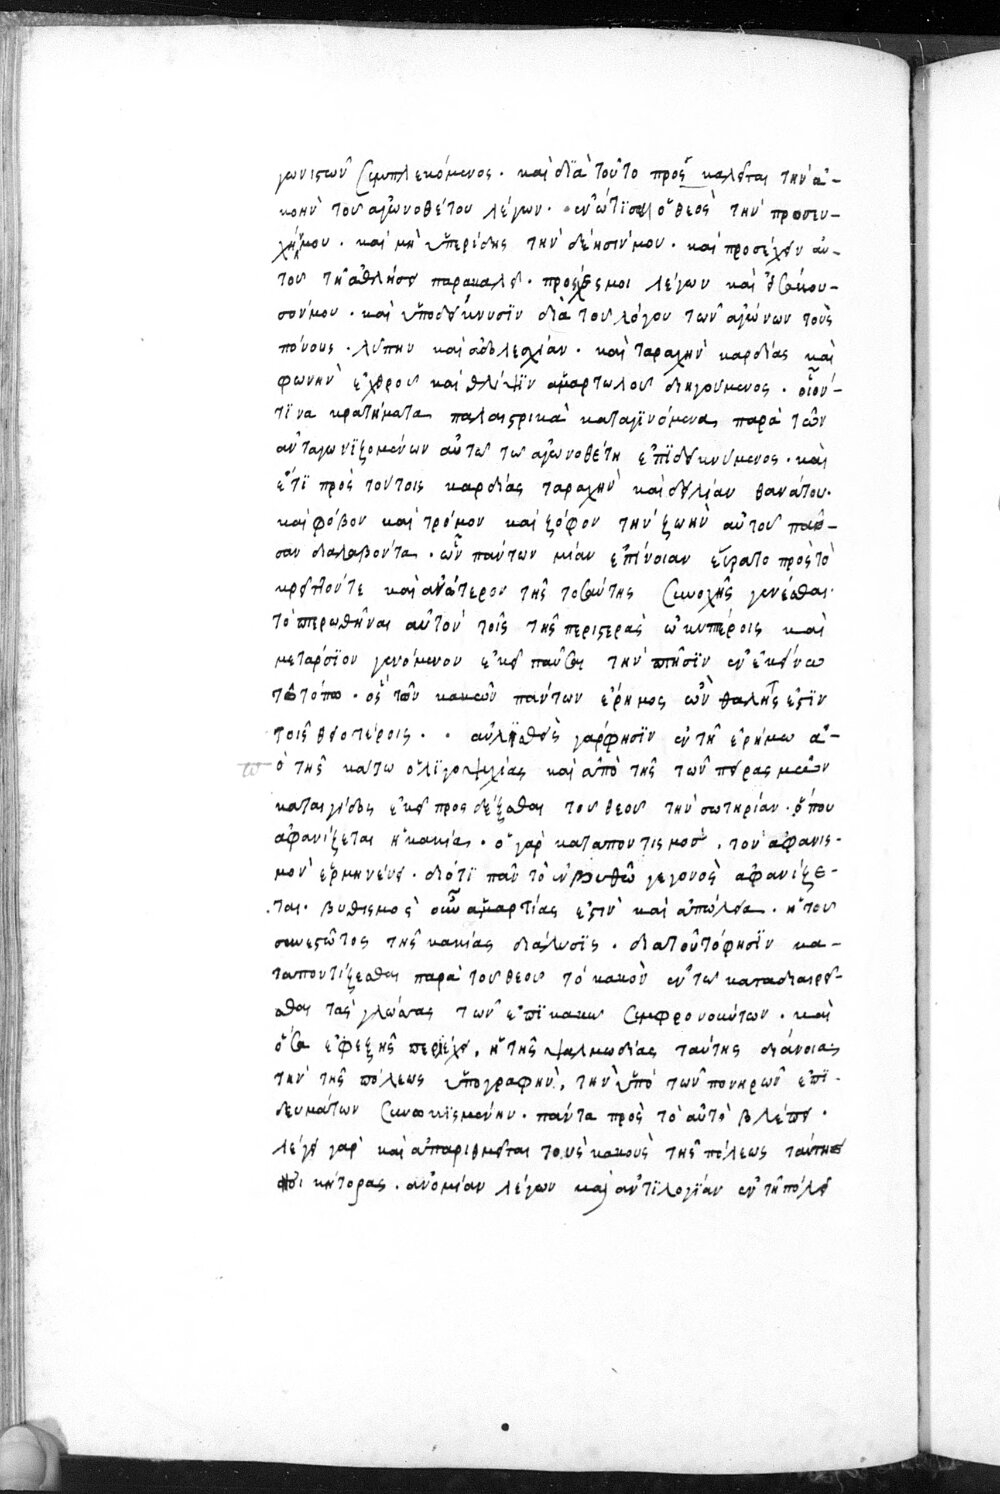 γωνιστῶν συμπλεκόμενος · καὶ διὰ τοῦτο προσκαλεῖται τὴν ἀ-
κοὴν τοῦ ἀγωνοθέτου λέγων · ἐνώτισαι ὁ θεὸς τὴν προσευ-
χήν μου · καὶ μὴ ὑπερίδης τὴν δέησίν μου · καὶ προσέχειν αὐ-
τοῦ τῆ ἀθλήσει παρακαλεῖ · πρόσχες μοι λέγων καὶ εἰσάκου-
σόν μου · καὶ ὑποδείκνυσϊν διὰ τοῦ λόγου τῶν ἀγώνων τοὺς
πόνους · λύπην καὶ ἀδολεσχίαν · καὶ ταραχὴν καρδίας καὶ
φωνὴν ἐχθροῦ καὶ θλίψϊν ἁμαρτωλοῦ διηγούμενος · οἷον
τϊνα κρατήματα παλαιστρικὰ καταγϊνόμενα παρὰ τῶν
ἀνταγωνϊζομένων αὐτῶ τῶ ἀγωνοθέτη ἐπϊδεικνύμενος · καὶ
ἔτϊ πρὸς τούτοις καρδίας ταραχὴν καὶ δειλίαν θανάτου ·
καὶ φόβον καὶ τρόμον καὶ ζόφον τὴν ζωὴν αὐτοῦ πᾶ-
σαν διαλαβόντα · ὧν πάντων μίαν ἐπίνοιαν εὕρατο πρὸς τὸ
κρεῖττόν τε καὶ ἀνώτερον τῆς τοιαύτης συνοχῆς γενέσθαι ·
τὸ πτερωθῆναι αὐτὸν τοῖς τῆς περιστερᾶς ὠκυπτέροις καὶ
μετάρσϊον γενόμενον ἐκεῖ παῦσαι τὴν πτῆσϊν ἐν ἐκείνω
τῶ τόπω · ὃς τῶν κακῶν πάντων ἔρημος ὢν θαλης ἐστϊν
τοῖς θειοτέροις · · αὐλϊσθεὶς γάρ φησϊν ἐν τῆ ἐρήμω ἀ-
πὸ τῆς κάτω ὀλϊγοψυχίας καὶ ἀπὸ τῆς τῶν πειρασμῶν
καταιγίδος ἐκεῖ προσδέξασθαι τοῦ θεοῦ τὴν σωτηρίαν · ὅπου
ἀφανίζεται ἡ κακία · ὁ γὰρ καταποντισμὸς, τὸν ἀφανισ-
μὸν ἑρμηνεύει · διότϊ πᾶν τὸ ἐν βυθῶ γεγονὸς ἀφανίζε-
ται · βυθισμὸς οὖν ἁμαρτίας ἐστὶν καὶ ἀπώλεια · ἡ τοῦ
συνεστῶτος τῆς κακίας διάλυσϊς · διατοῦτό φησϊν κα-
ταποντίζεσθαι παρὰ τοῦ θεοῦ τὸ κακὸν ἐν τῶ καταδιαιρεῖ-
σθαι τὰς γλώσσας τῶν ἐπϊ κακῶ συμφρονούντων · καὶ
ὅσα ἐφεξῆς περιέχει, ἡ τῆς ψαλμωδίας ταύτης διάνοια
τὴν τῆς πόλεως ὑπογραφὴν, τὴν ὑπὸ τῶν πονηρῶν ἐπϊ-
δευμάτων συνωκϊσμένην · πάντα πρὸς τὸ αὐτὸ βλέπει ·
λέγει γὰρ καὶ ἀπαριθμεῖται τοὺς κακοὺς τῆς πόλεως ταύτης
οἰκήτορας · ἀνομίαν λέγων καὶ ἀντϊλογϊαν ἐν τῆ πόλει